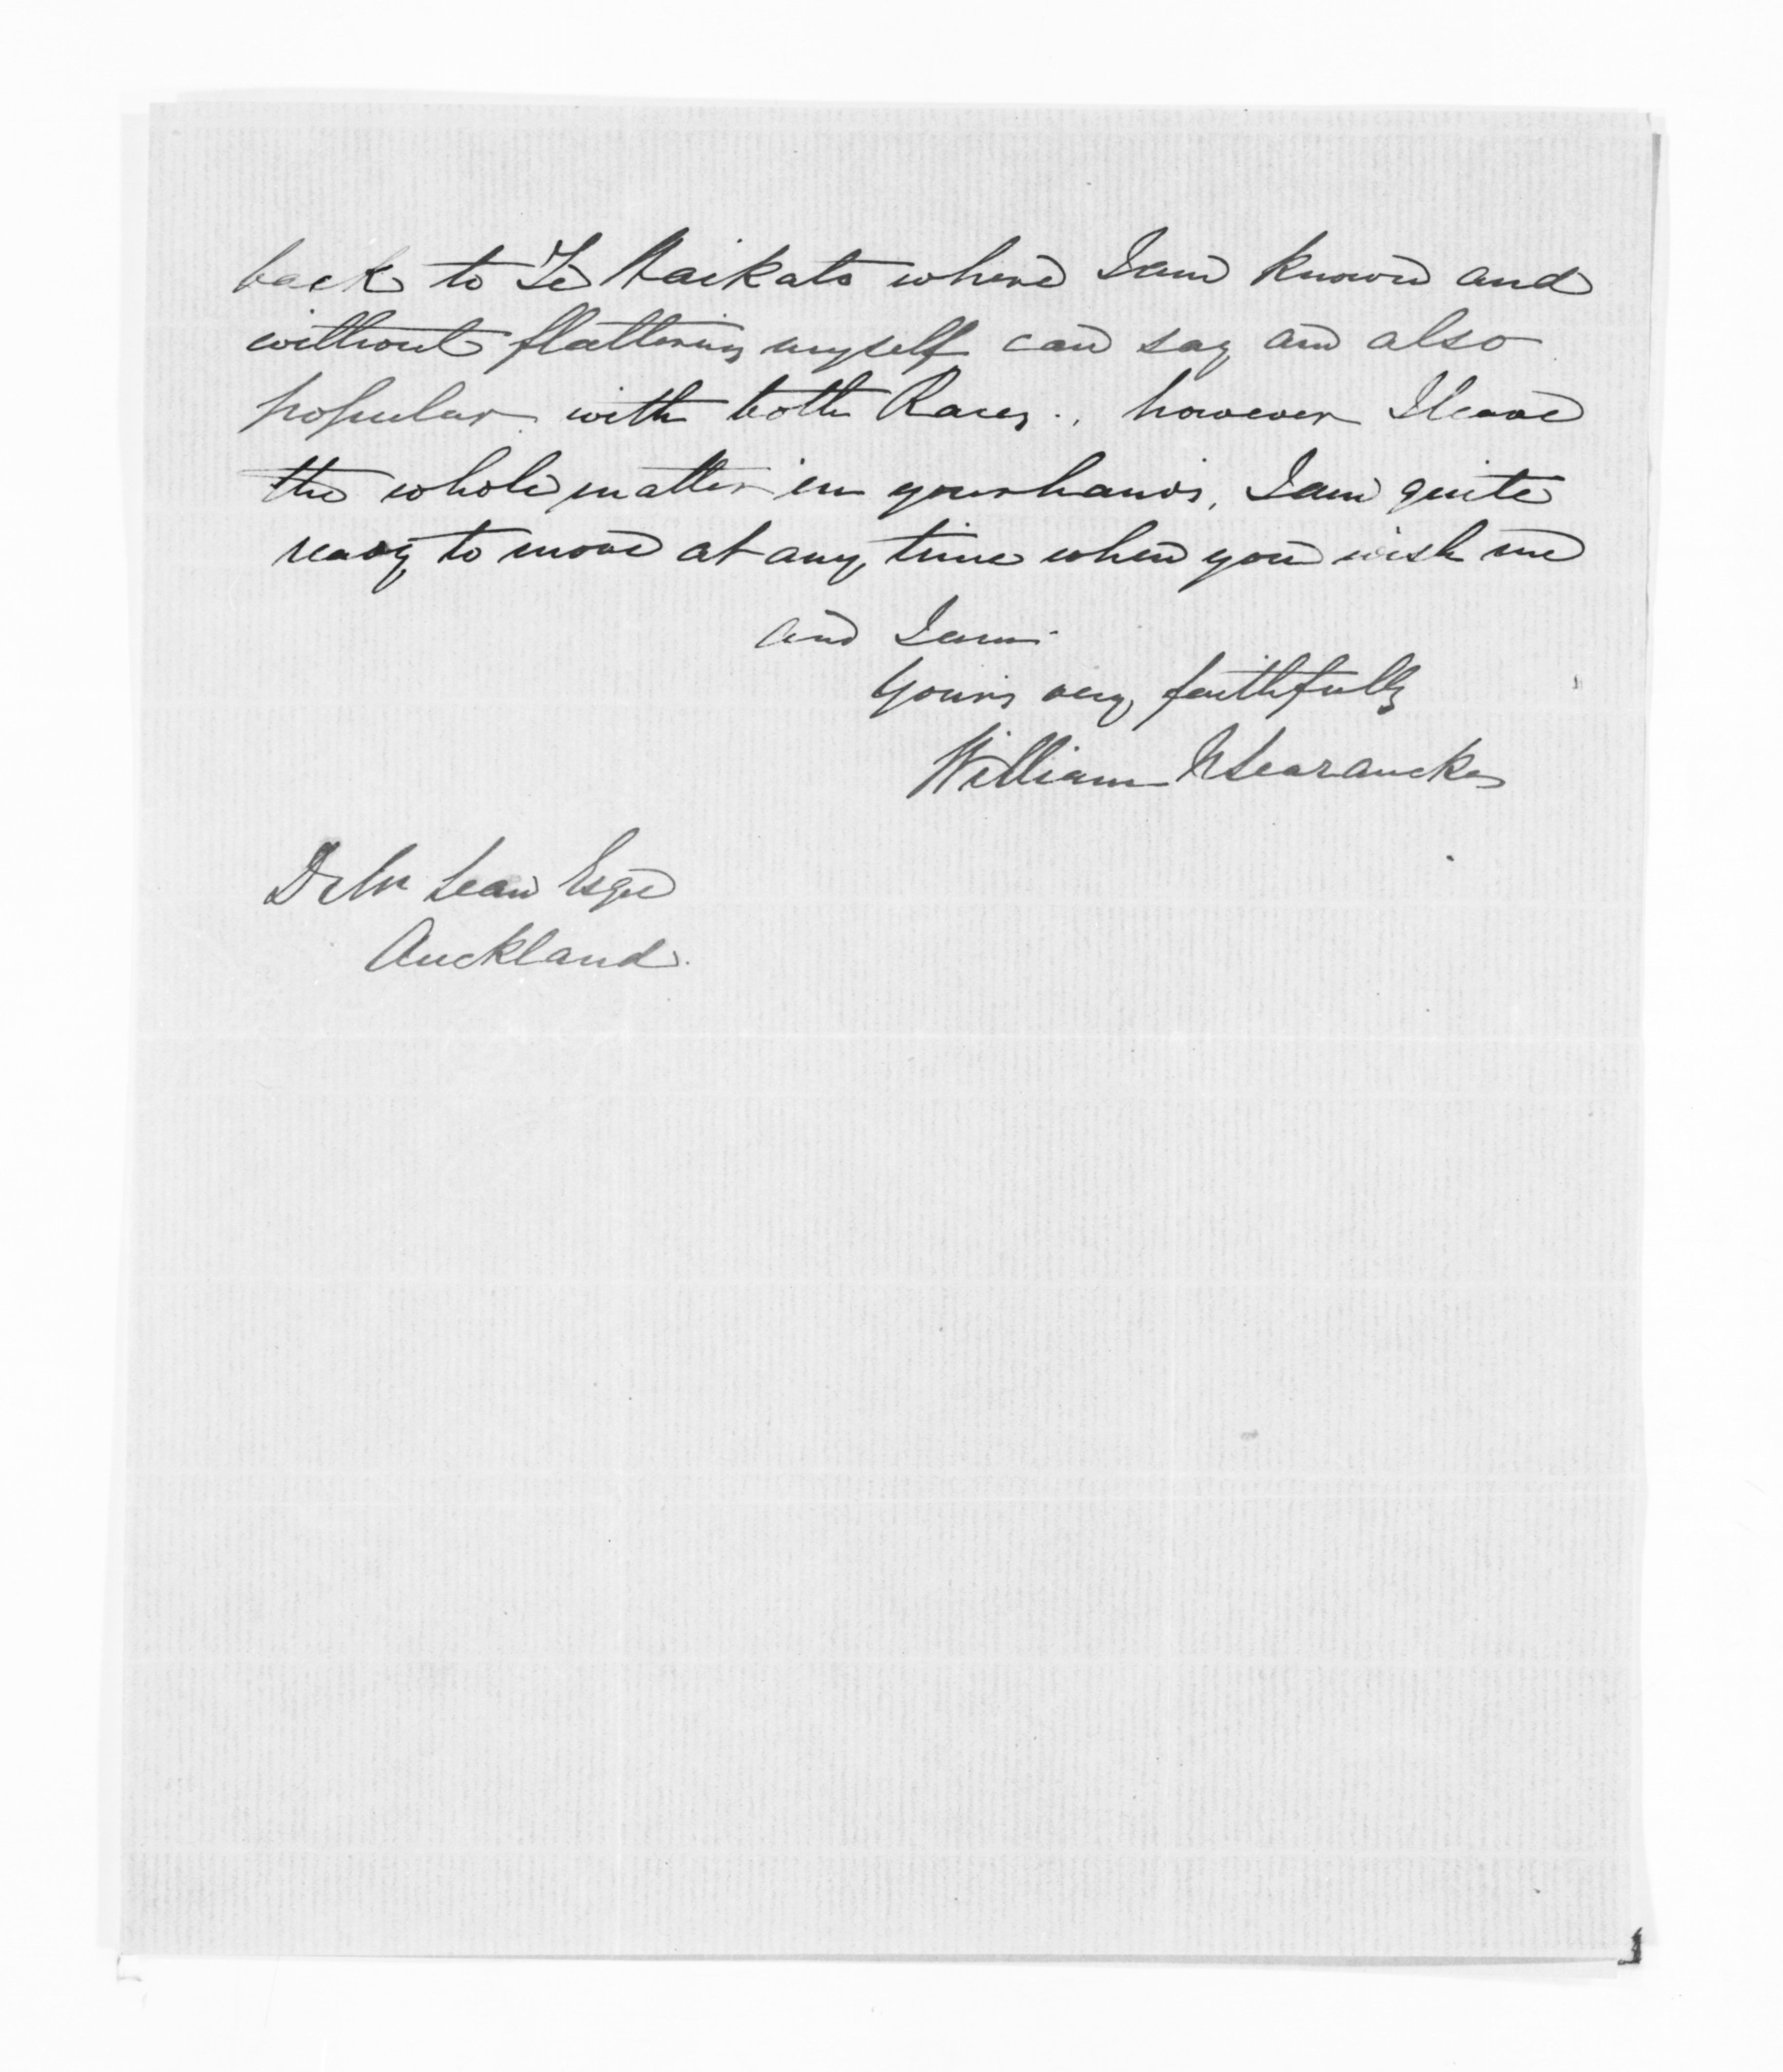 back to Te Waikato where I am known and
without flattering myself can say am also
popular with both Races., however I leave
the whole matter in your hands, I am quite
ready to move at any time when you wish me
and I am
Yours very faithfully
William N Searancke
D Mc Lean Esqre
Auckland.